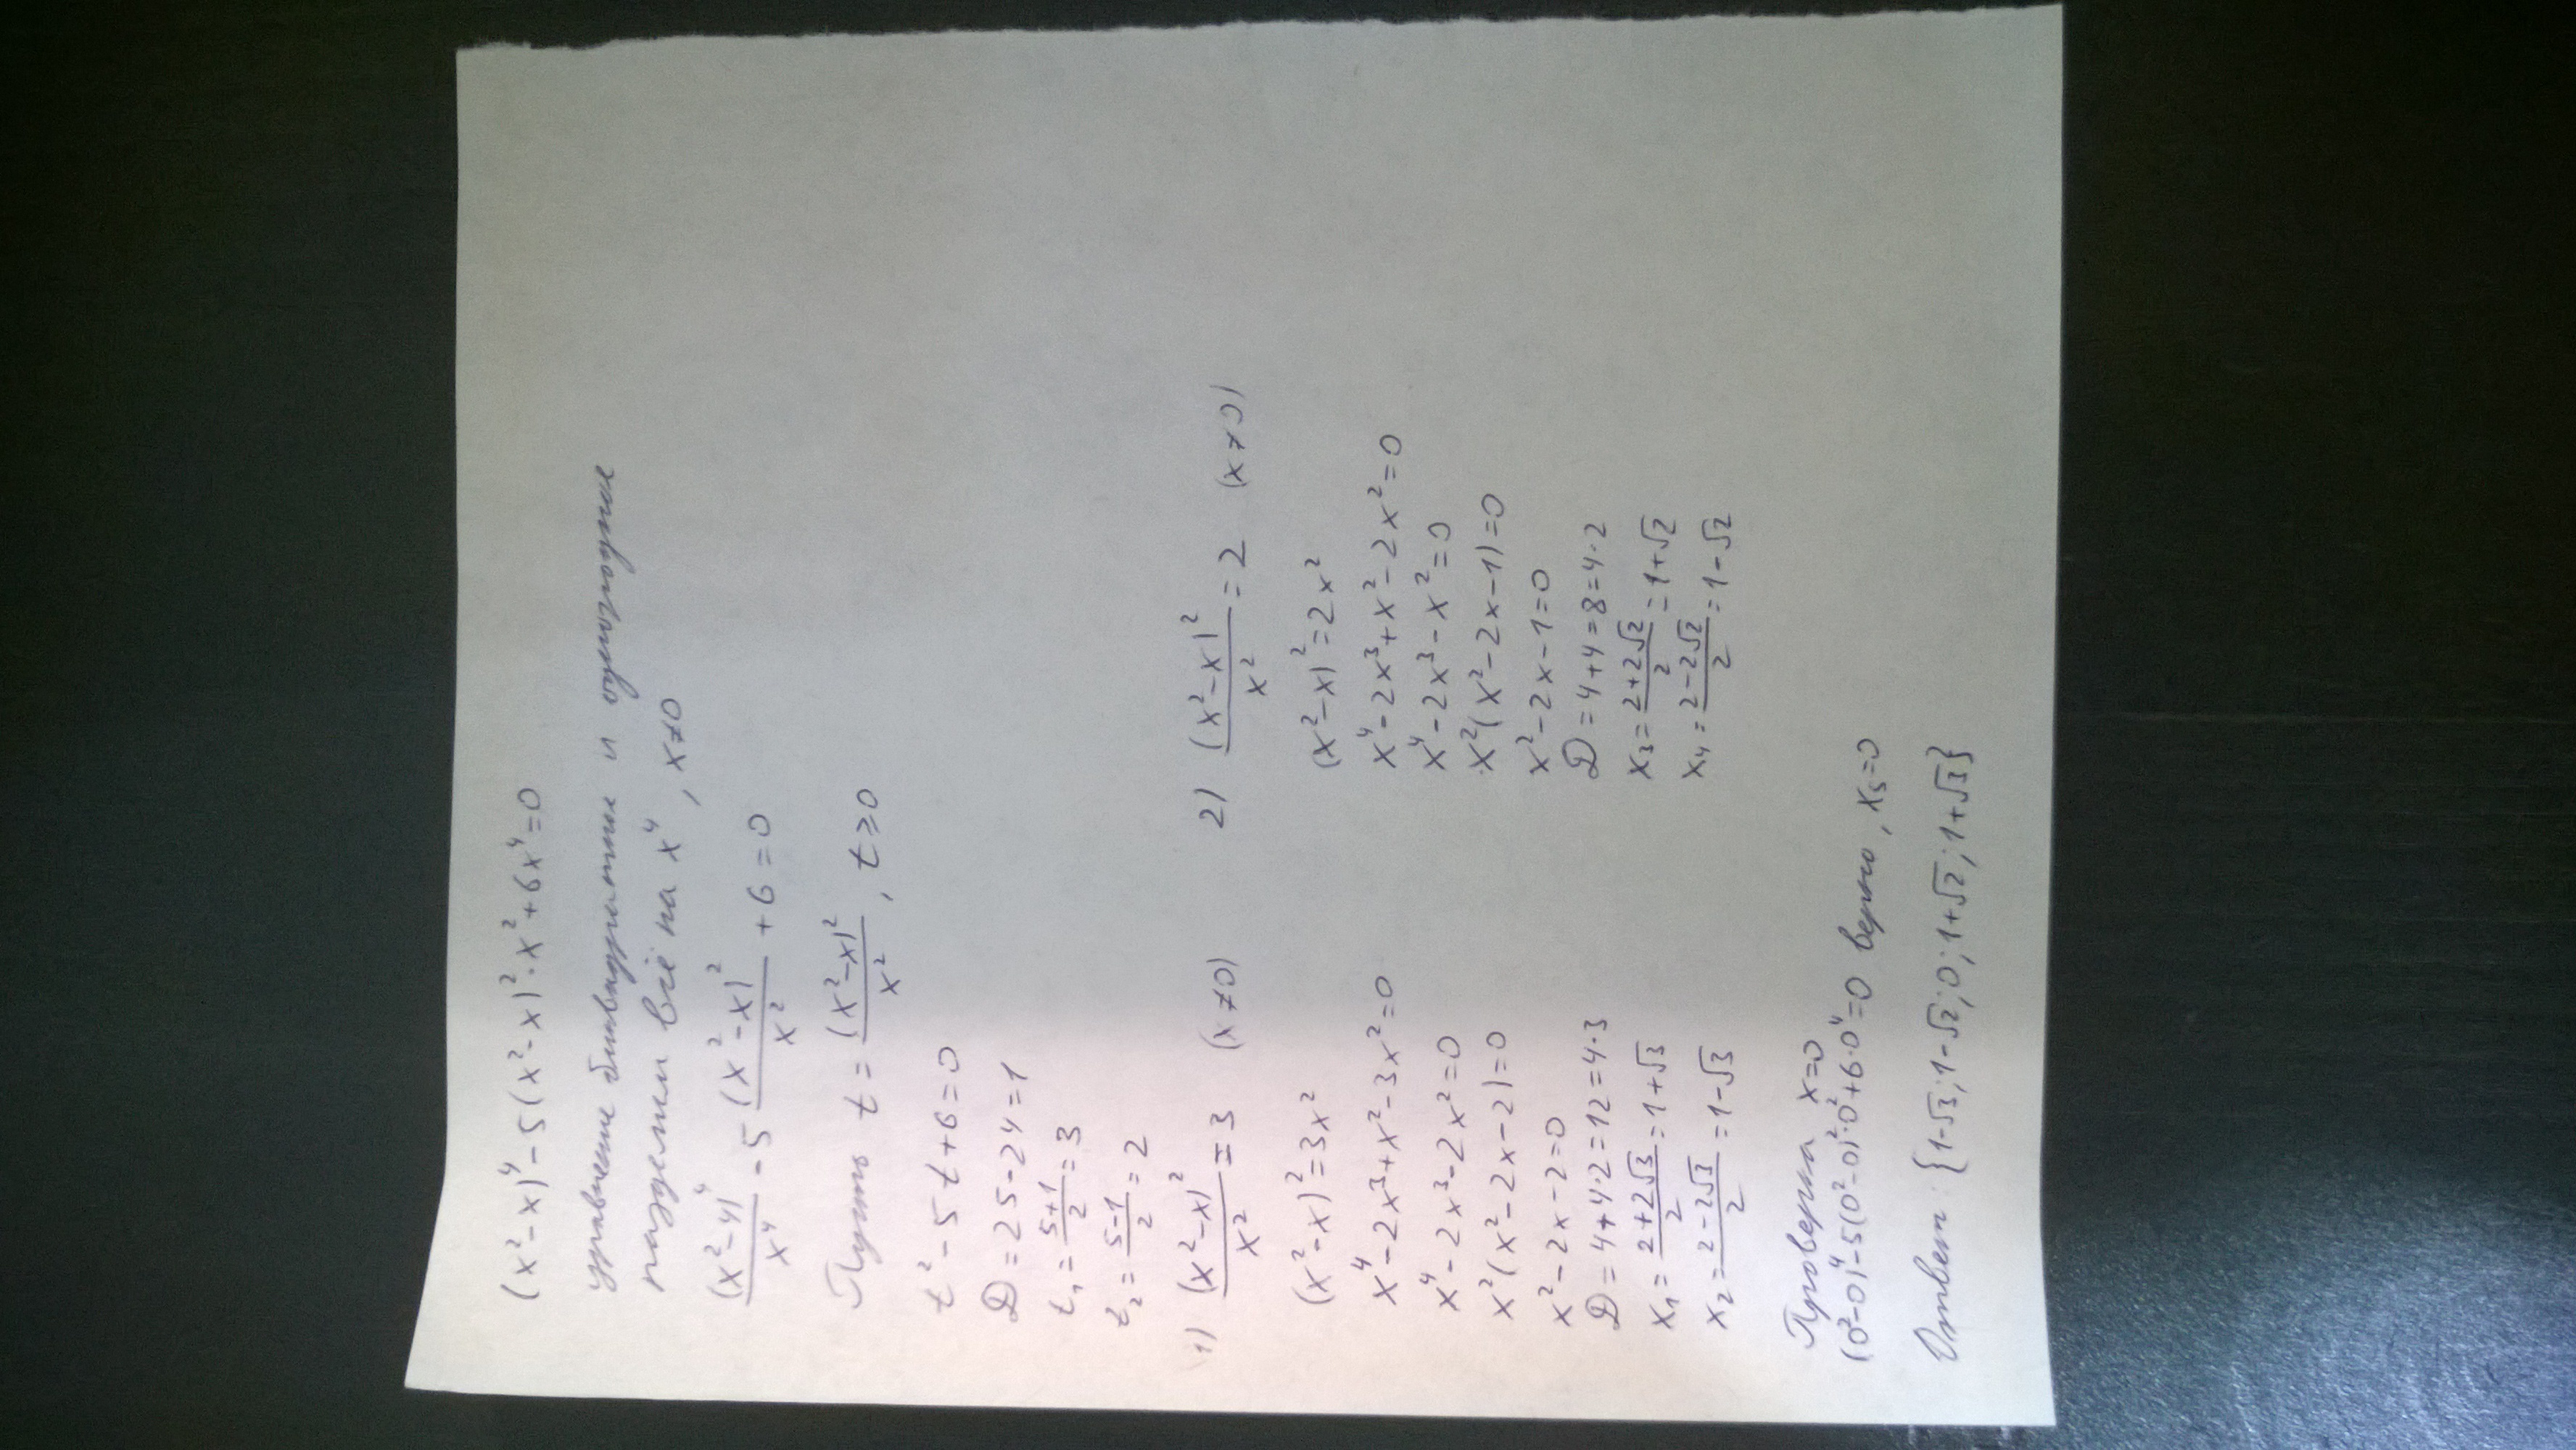 (x²-x)⁴-5(x²-x)²·x²+6x⁴=0
уравнение биквадратное и однородное
разделим всё на x⁴, x≠0
(x²-4)⁴/x⁴ - 5 (x²-x)²/x² + 6 = 0
Пусть t = (x²-x)²/x², t≥0
t²-5t+6=0
D=25-24=1
t₁=(5+1)/2=3
t₂=(5-1)/2=2
1) (x²-x)²/x² = 3 (x≠0)
(x²-x)²=3x²
x⁴-2x³+x²-3x²=0
x⁴-2x³-2x²=0
x²(x²-2x-2)=0
x²-2x-2=0
D=4+4·2=12=4·3
x₁=(2+2√3)/2=1+√3
x₂=(2-2√3)/2=1-√3
2) (x²-x)²/x² = 2 (x≠0)
(x²-x)²=2x²
x⁴-2x³+x²-2x²=0
x⁴-2x³-x²=0
x²(x²-2x-1)=0
x²-2x-1=0
D=4+4=8=4·2
x₃=(2+2√2)/2=1+√2
x₄=(2-2√2)/2=1-√2
Проверка x=0
(0²-0)⁴-5(0²-0)²·0²+6·0⁴=0 верно, x₅=0
Ответ: {1-√3; 1-√2; 0; 1+√2; 1+√3}